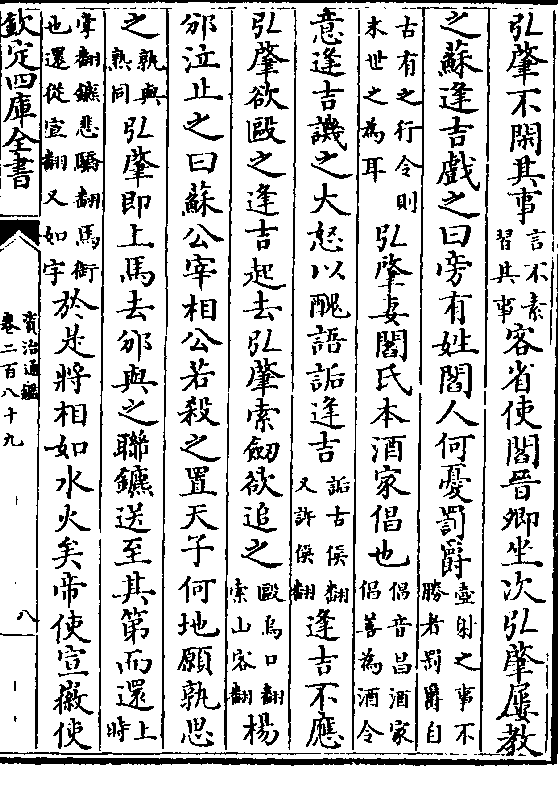 弘肇不閑其事言不素習其事客省使閻晉卿坐次弘肇屢教
之蘇逢吉戲之曰旁有姓閻人何憂罰爵壺射之事不勝者罰爵自
古有之行令則末世之為耳弘肇妻閻氏本酒家倡也倡音昌酒家倡善為酒令
意逢吉譏之大怒以醜語詬逢吉詬古候翻又許候翻逢吉不應
弘肇欲毆之逢吉起去弘肇索劒欲追之毆烏口翻索山客翻楊
邠泣止之曰蘇公宰相公若殺之置天子何地願孰思
之孰與熟同弘肇即上馬去邠與之聯鑣送至其第而還上時
掌翻鑣悲驕翻馬銜也還從宣翻又如字於是將相如水火矣帝使宣徽使
欽定四庫全書
資治通鑑
卷二百八十九
八